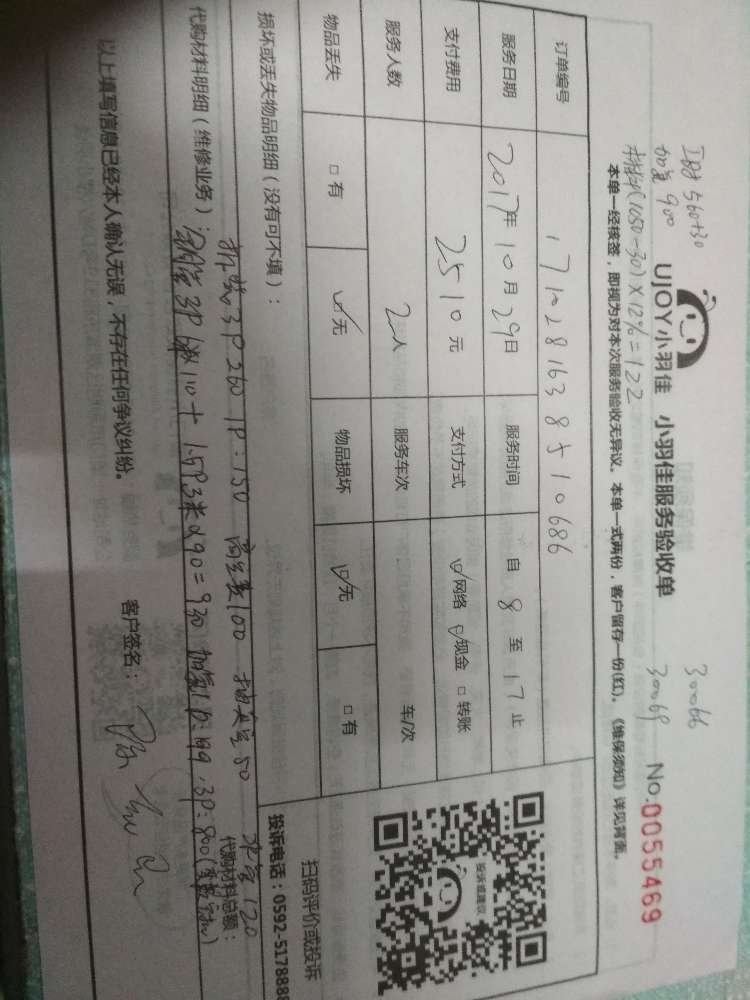 工时 560+30
加氟 900
材料(1050-30)×12%=122
30066
30069
UJOY小羽佳 小羽佳服务验收单 No:0055469
本单一经核签，即视为对本次服务验收无异议。本单一式两份，客户留存一份(红)。《维保须知》详见背面。
订单编号 1710281638510686
服务日期 2017年10月29日 服务时间 自 8 至 17 止
支付费用 2510元 支付方式 ☑网络 ☑现金 □转账
服务人数 2人 服务车次 车/次
物品丢失 □有 ☑无 物品损坏 ☑无 □有
损坏或丢失物品明细（没有可不填）：
扫码评价或投诉
投诉电话：0592-5178888
投诉或建议
拆装3P 260 1P：150 高空费100 抽真空50 水管120
代购材料明细（维修业务）： 代购材料总额：
铜管3P 110+1.5P3米×90=930 加氟1P：199．3P：800
以上填写信息已经本人确认无误，不存在任何争议纠纷。 客户签名：